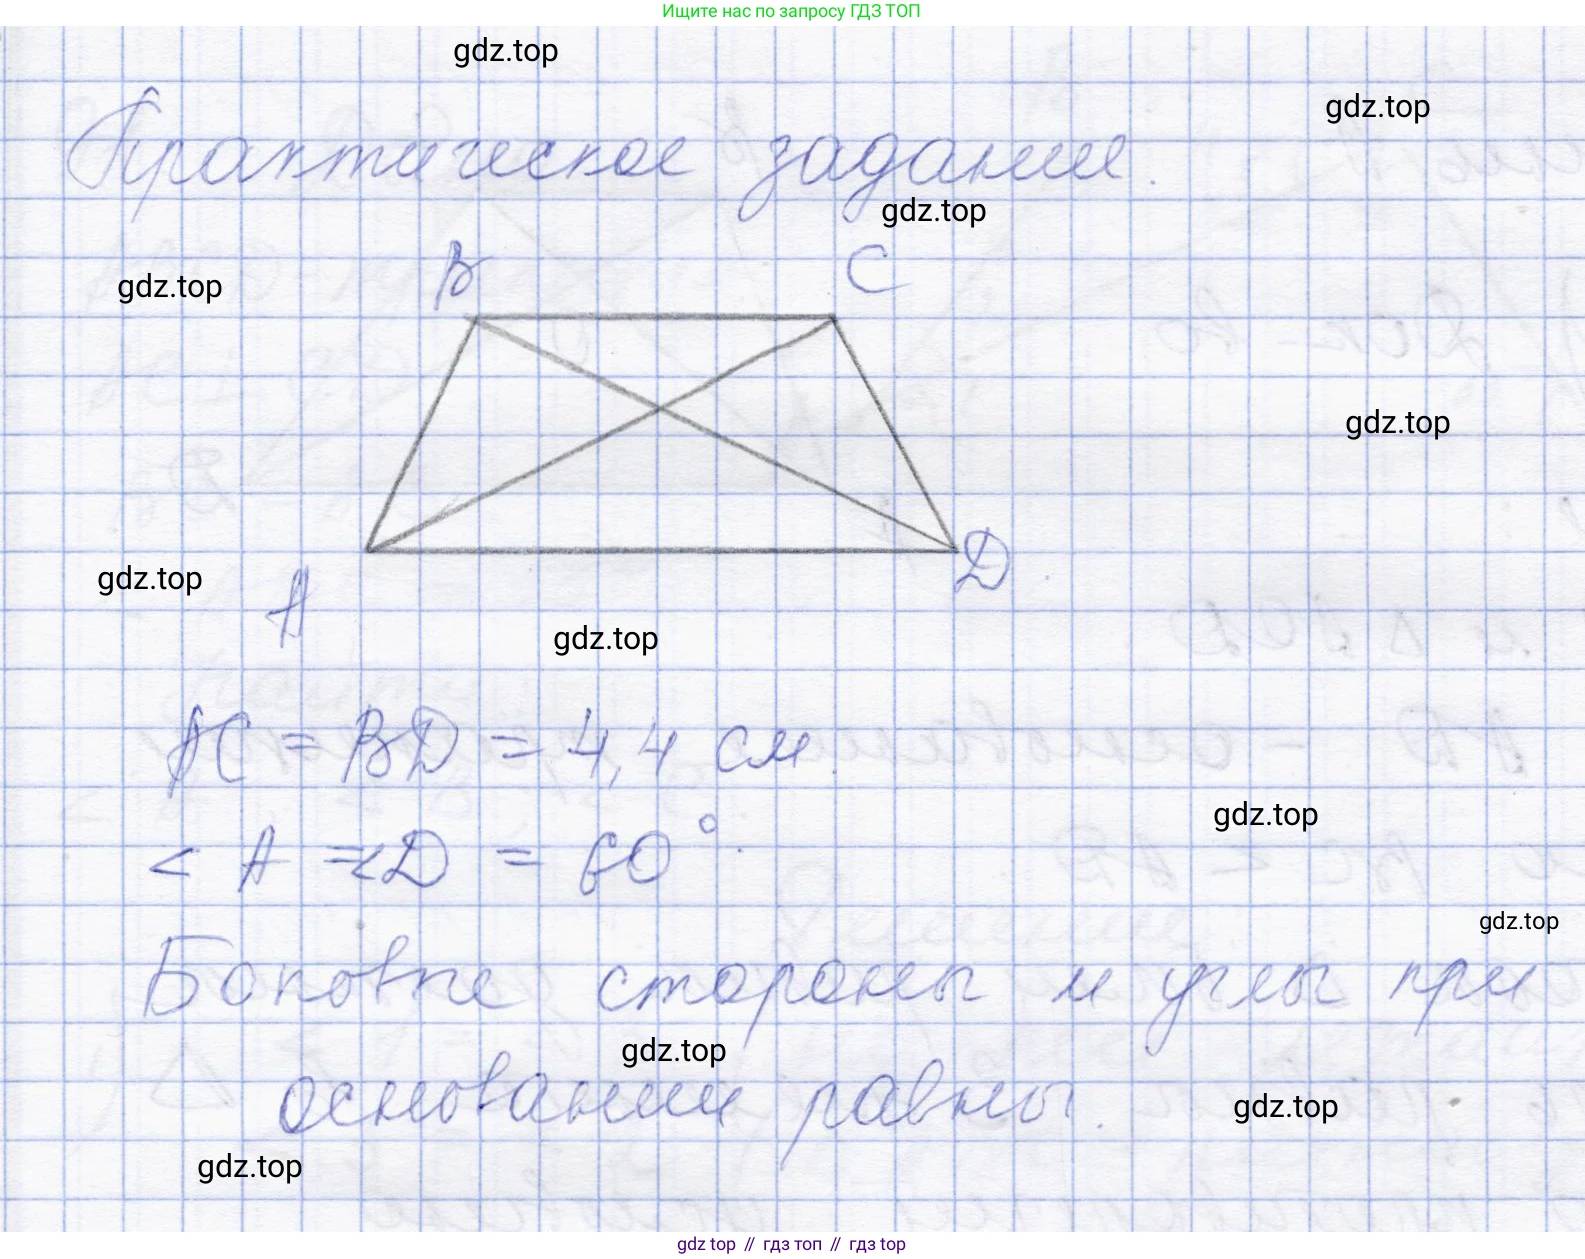 Ищите нас по запросу ГДЗ ТОП
gdz.top
gdz.top
Практическое задание.
gdz.top
B
C
gdz.top
gdz.top
gdz.top
D
A
gdz.top
AC = BD = 4,4 см.
gdz.top
< A = <D = 60°.
gdz.top
Боковые стороны и углы при
gdz.top
основании равны.
gdz.top
gdz.top
gdz top // гдз топ // гдз top